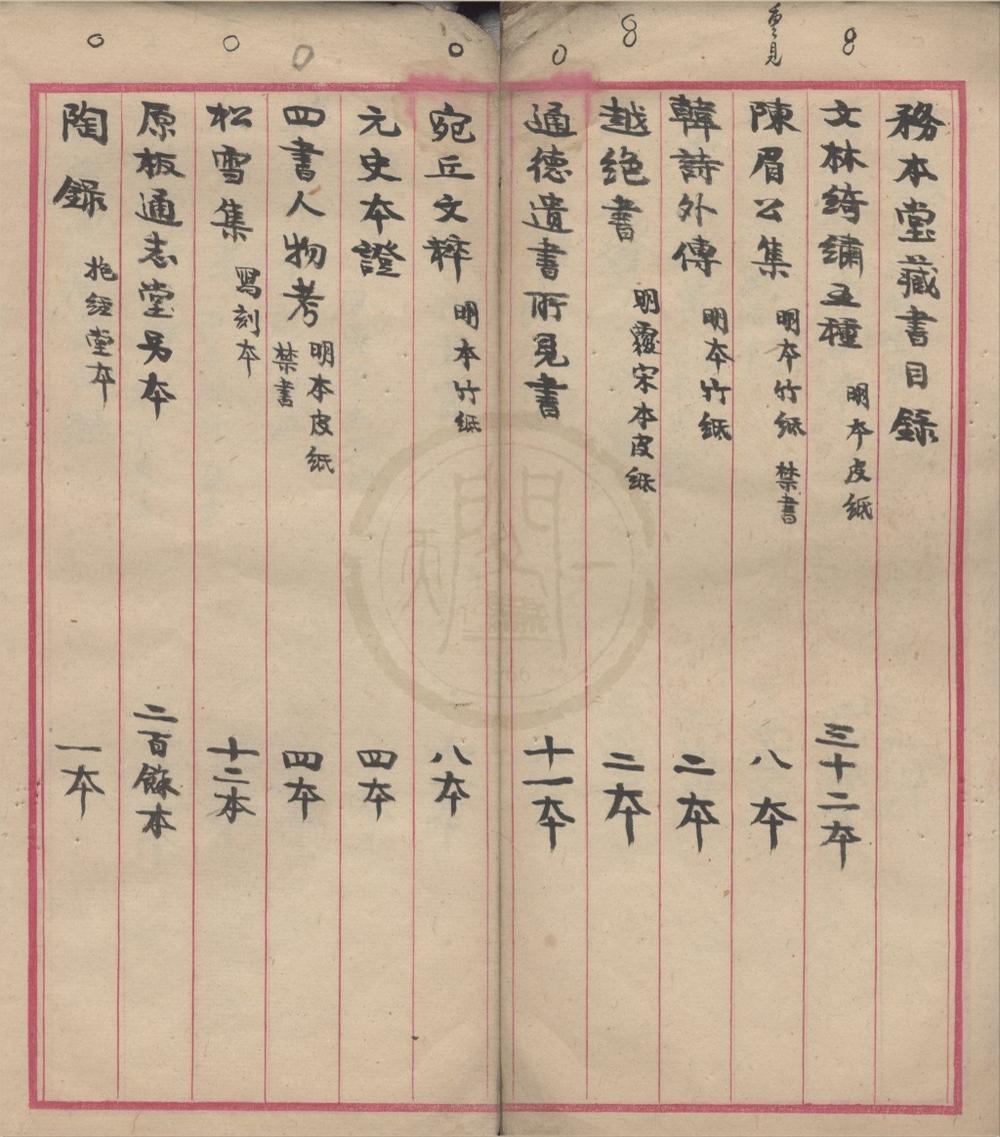 務本堂藏書目錄
文林綺繡五種 明本皮紙 三十二本
重見
陳眉公集 明本竹紙 禁書 八本
韓詩外傳 明本竹紙 二本
越絶書 明覆宋本皮紙 二本
通德遺書所見書 十一本
宛丘文粹 明本竹紙 八本
元史本證 四本
四書人物考 明本皮紙 禁書 四本
松雪集 寫刻本 十二本
原板通志堂另本 二百餘本
陶錄 抱經堂本 一本